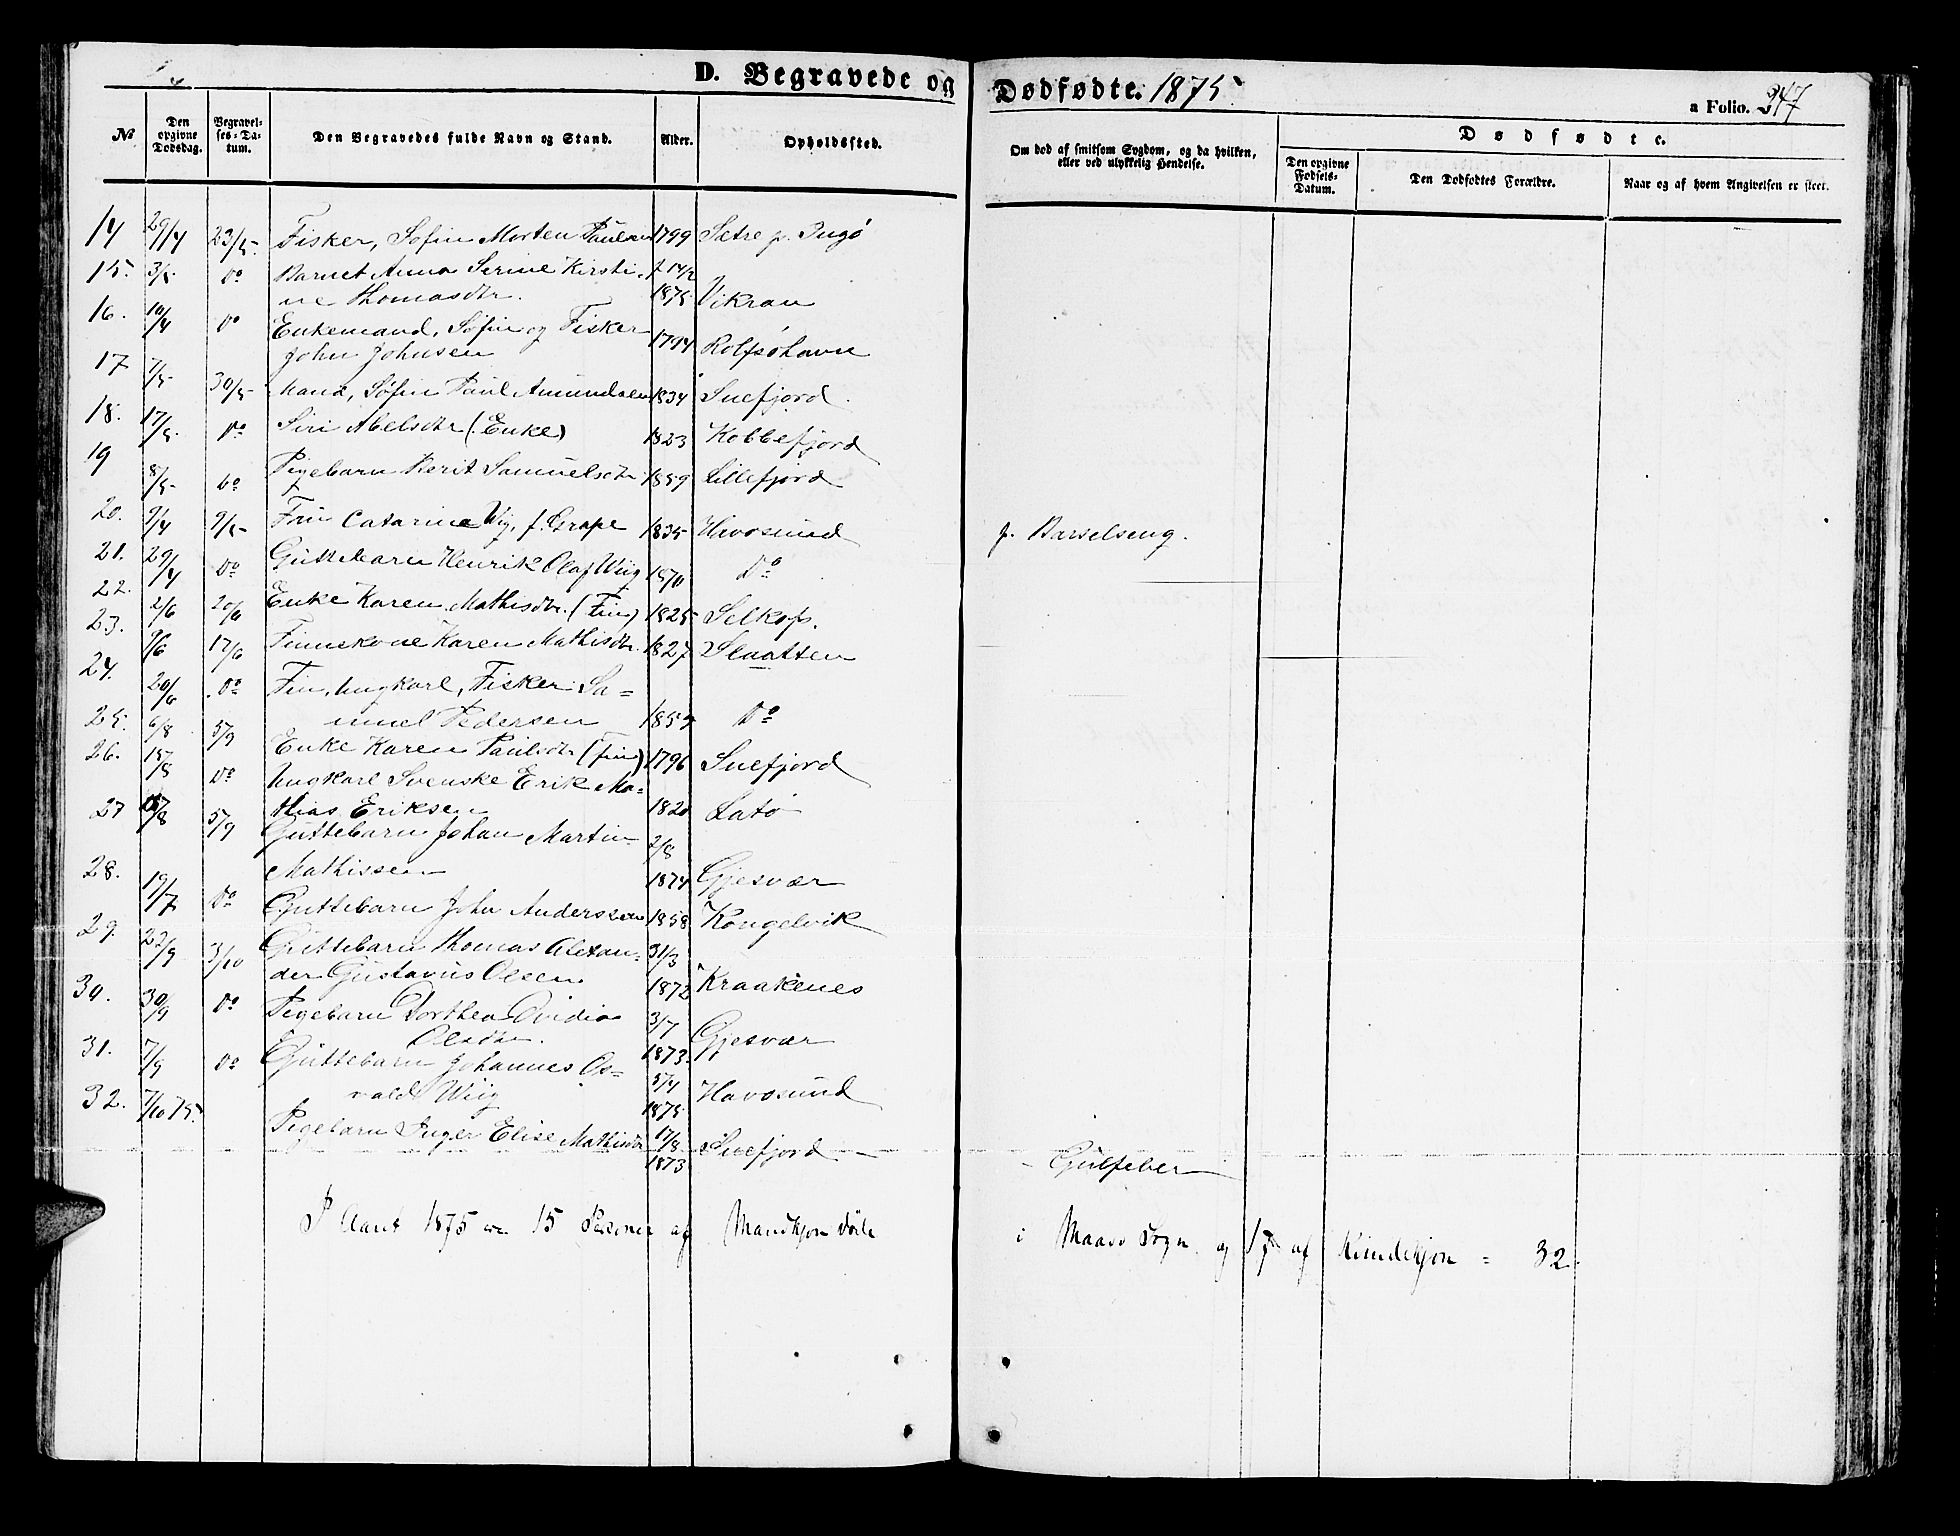 D. Begravede og Dødfødte. 1875.
a Folio. 347
No
Den opgivne Dødsdag.
Begravelses-Datum.
Den Begravedes fulde Navn og Stand.
Alder.
Opholdssted.
Om død af smitsom Sygdom, og da hvilken, eller ved ulykkelig Hendelse.
Dødfødte.
Den opgivne Fødsels-Datum.
Den Dødfødtes Forældre.
Naar og af hvem Angivelsen er skeet.
14 29/4 23/5 Fisker, Søfin Morten Paulsen 1799 Sætre p. Ingø
15. 3/5 Do Barnet Anna Serine Kirsti-
ne Thomasdtr. f. 14/2 1875 Vikran
16. 10/4 Do Enkemand, Søfin og Fisker
John Johnsen 1794 Rolfsøhavn
17 7/5 30/5 Mand, Søfin Paul Amundsen 1834 Snefjord.
18. 17/5 Do Siri Abelsdtr (Enke) 1823 Kobbefjord
19 8/5 do Pigebarn Berit Samuelsdtr 1859 Lillefjord
20. 9/4 9/5 Fru Catarine Wig, f. Grape 1835 Havøsund f. Barselseng.
21. 29/4 Do Guttebarn Henrik Olaf Wiig 1870 Do
22. 2/6 20/6 Enke Karen Mathisdtr. (Fin) 1825 Selkop.
23. 9/6 17/6 Finnekone Karen Mathisdtr. 1827 Slaatten
24. 20/6 Do Fin, Ungkarl, Fisker Sa=
muel Pedersen 1857 Do
25. 6/8 5/9 Enke Karen Paulsdtr (fin) 1796 Snefjord
26. 15/8 Do Ungkarl Svenske Erik Ma=
thias Eriksen 1820 Latø
27 15/8 5/9 Guttebarn Johan Martin
Mathissen 2/8 1874 Gjesvær
28. 19/7 Do Guttebarn John Anderssen 1858 Kongelvik
29. 22/9 3/10 Guttebarn Thomas Alexan-
der Gustavus Olsen 31/3 1872 Kraakenes
30. 30/9 Do Pigebarn Dorthea Ovidia
Olsdtr. 3/7 1873 Gjesvær
31. 7/9 Do Guttebarn Johannes Os=
vald Wiig 5/4 1875 Havøsund
32. 7/10 75. Pigebarn Inger Elise Mathisdtr 17/8 1873 Snefjord - Gulfeber
I Aaret 1875 er 15 Personer af Mandkjøn døde i Maasø Sogn og 17 af Kvindekjøn = 32.